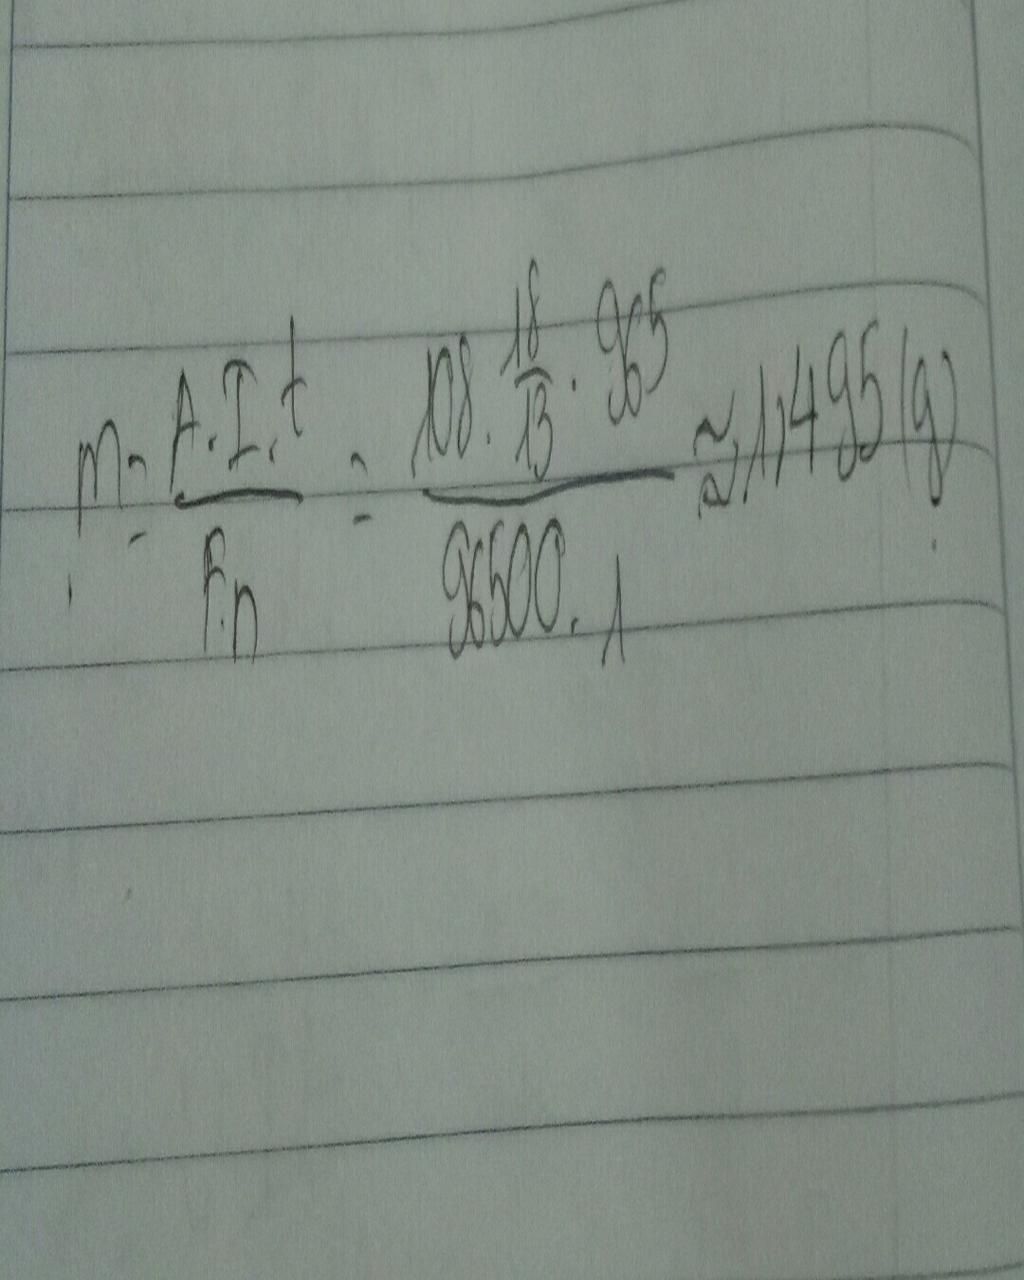 m = A.I.t / F.n = 108 . 18/13 . 965 / 96500 . 1 ≈ 1,495 (g)